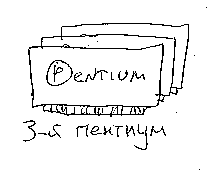 Pentium
3-й пентиум